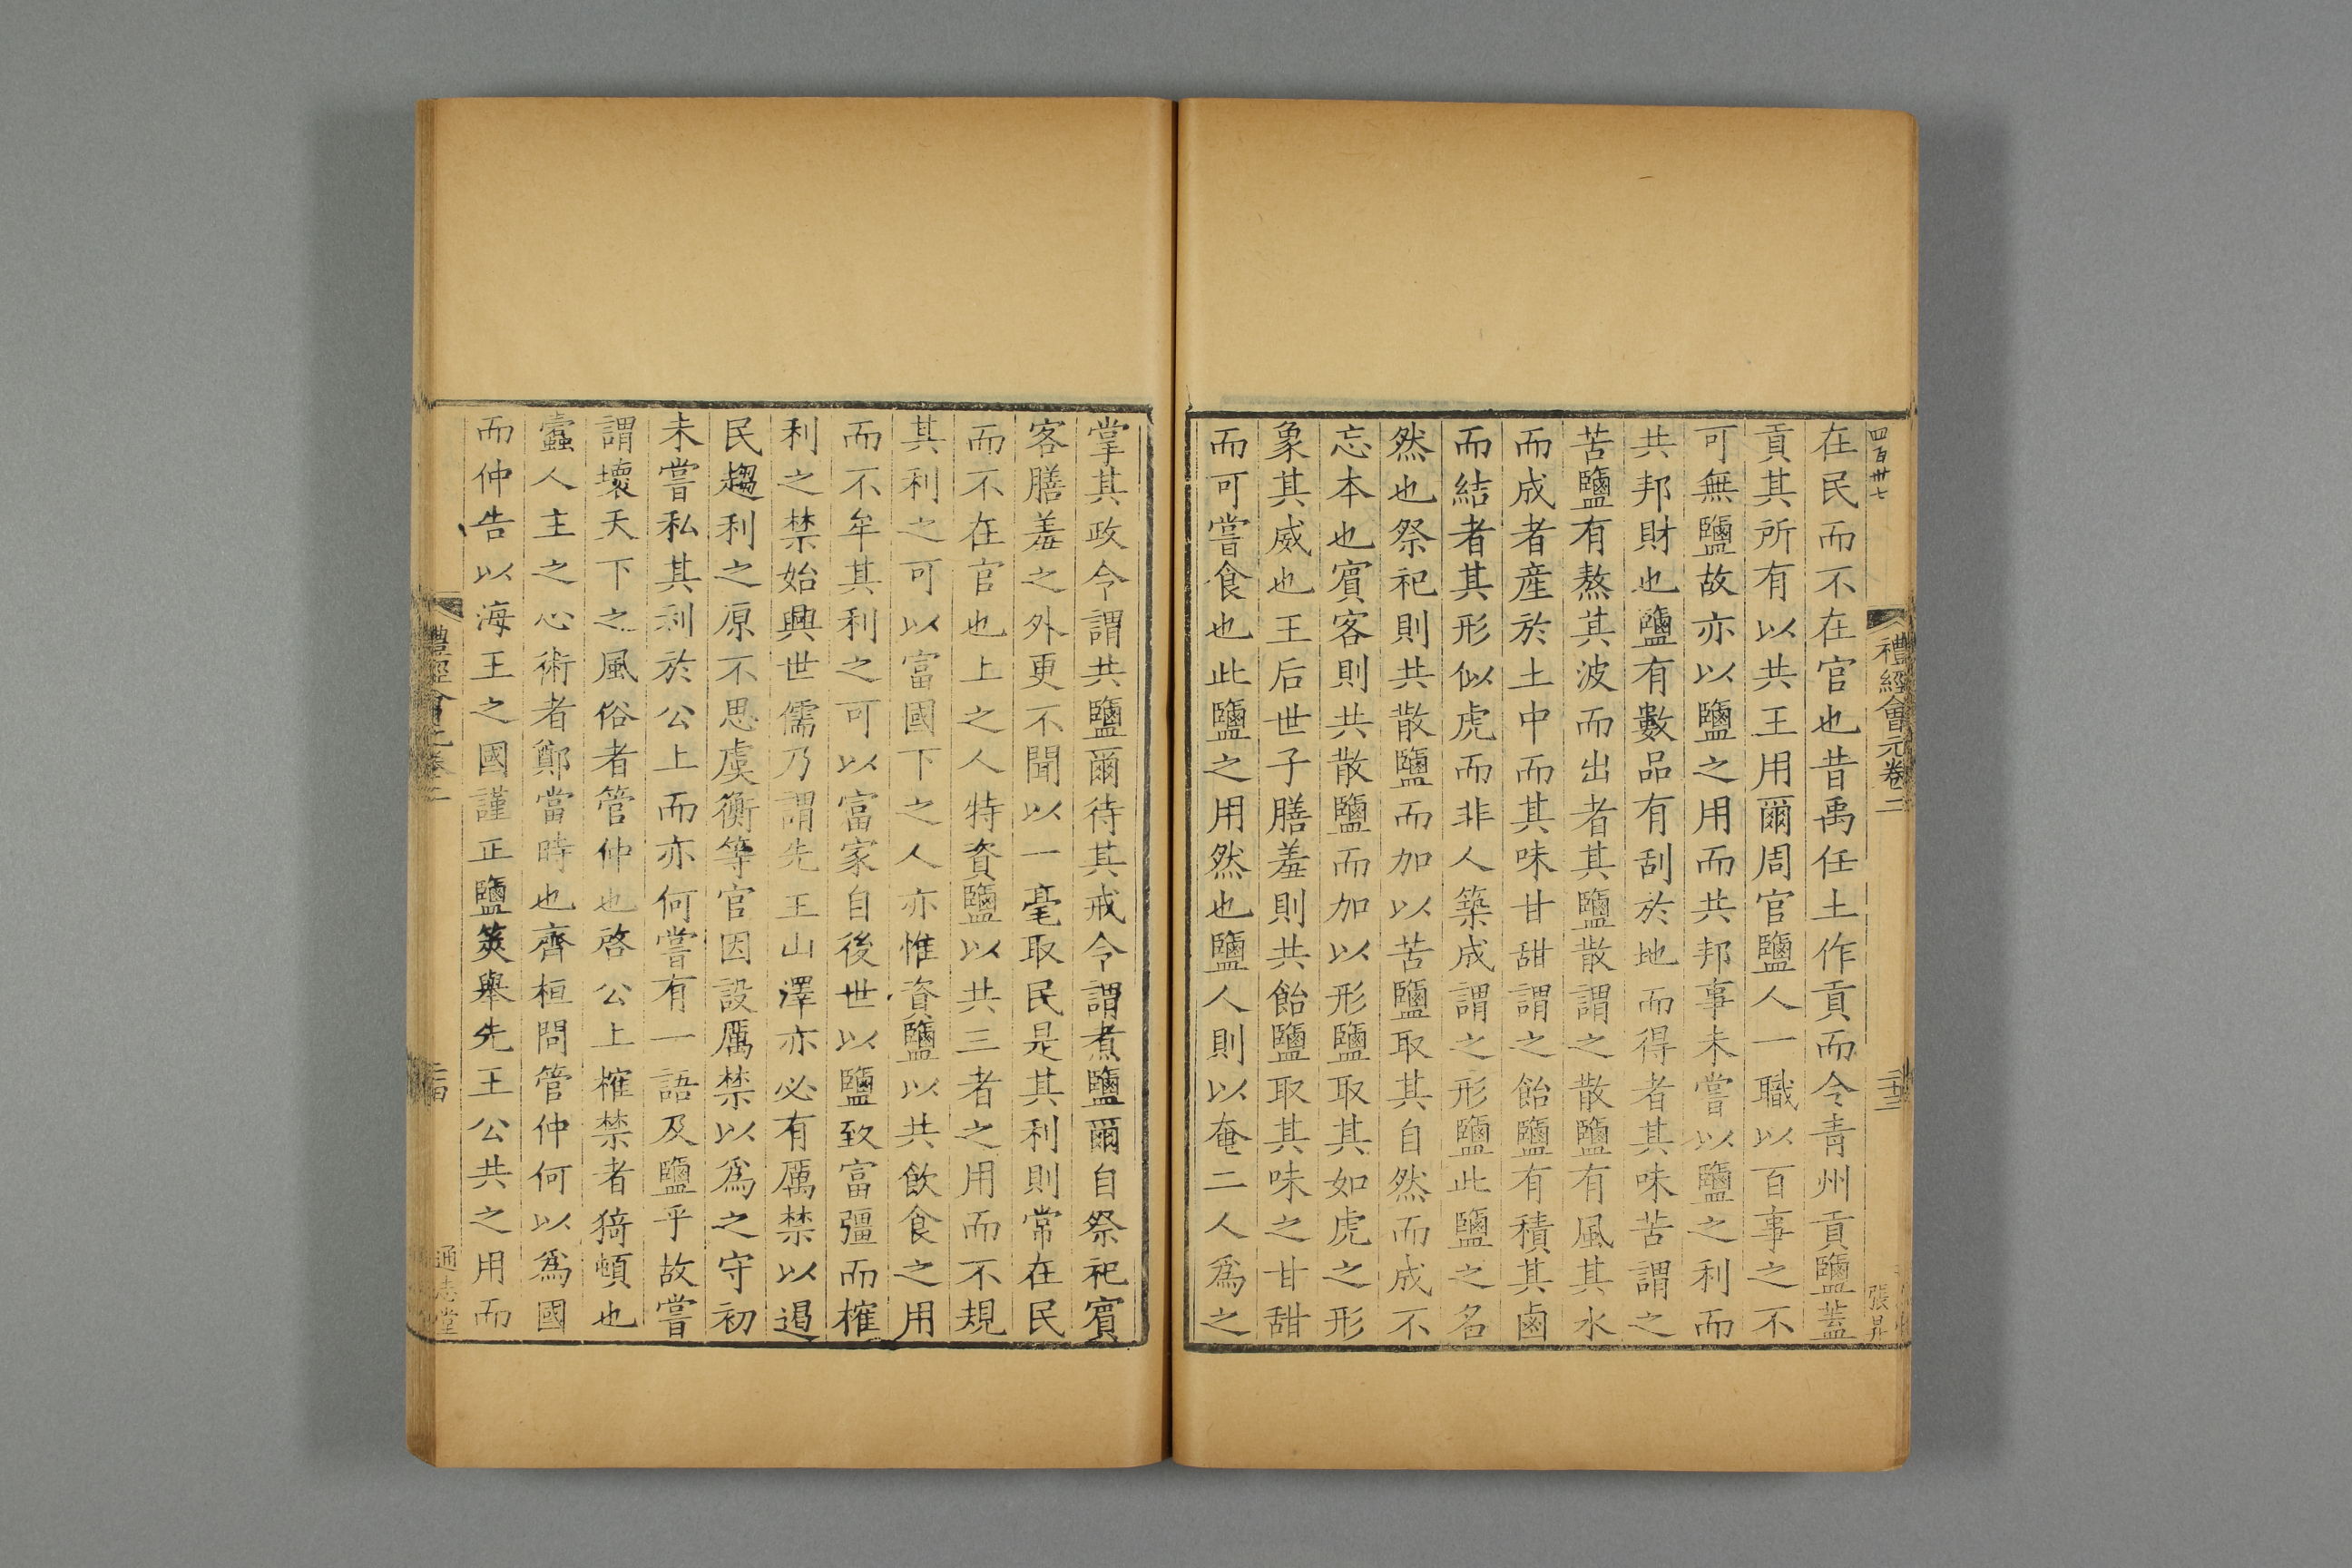 四百卅七
禮經會元卷二
二十三
張昇
在民而不在官也昔禹任土作貢而令青州貢鹽蓋
貢其所有以共王用爾周官鹽人一職以百事之不
可無鹽故亦以鹽之用而共邦事未嘗以鹽之利而
共邦財也鹽有數品有刮於地而得者其味苦謂之
苦鹽有熬其波而出者其鹽散謂之散鹽有風其水
而成者產於土中而其味甘甜謂之飴鹽有積其鹵
而結者其形似虎而非人築成謂之形鹽此鹽之名
然也祭祀則共散鹽而加以苦鹽取其自然而成不
忘本也賓客則共散鹽而加以形鹽取其如虎之形
象其威也王后世子膳羞則共飴鹽取其味之甘甜
而可嘗食也此鹽之用然也鹽人則以奄二人爲之
掌其政令謂共鹽爾待其戒令謂煮鹽爾自祭祀賓
客膳羞之外更不聞以一毫取民是其利則常在民
而不在官也上之人特資鹽以共三者之用而不規
其利之可以富國下之人亦惟資鹽以共飲食之用
而不牟其利之可以富家自後世以鹽致富彊而榷
利之禁始興世儒乃謂先王山澤亦必有厲禁以遏
民趨利之原不思虞衡等官因設厲禁以爲之守初
未嘗私其利於公上而亦何嘗有一語及鹽乎故嘗
謂壞天下之風俗者管仲也啓公上榷禁者猗頓也
蠹人主之心術者鄭當時也齊桓問管仲何以爲國
而仲告以海王之國謹正鹽筴舉先王公共之用而
禮經會元卷二
二十四
通志堂